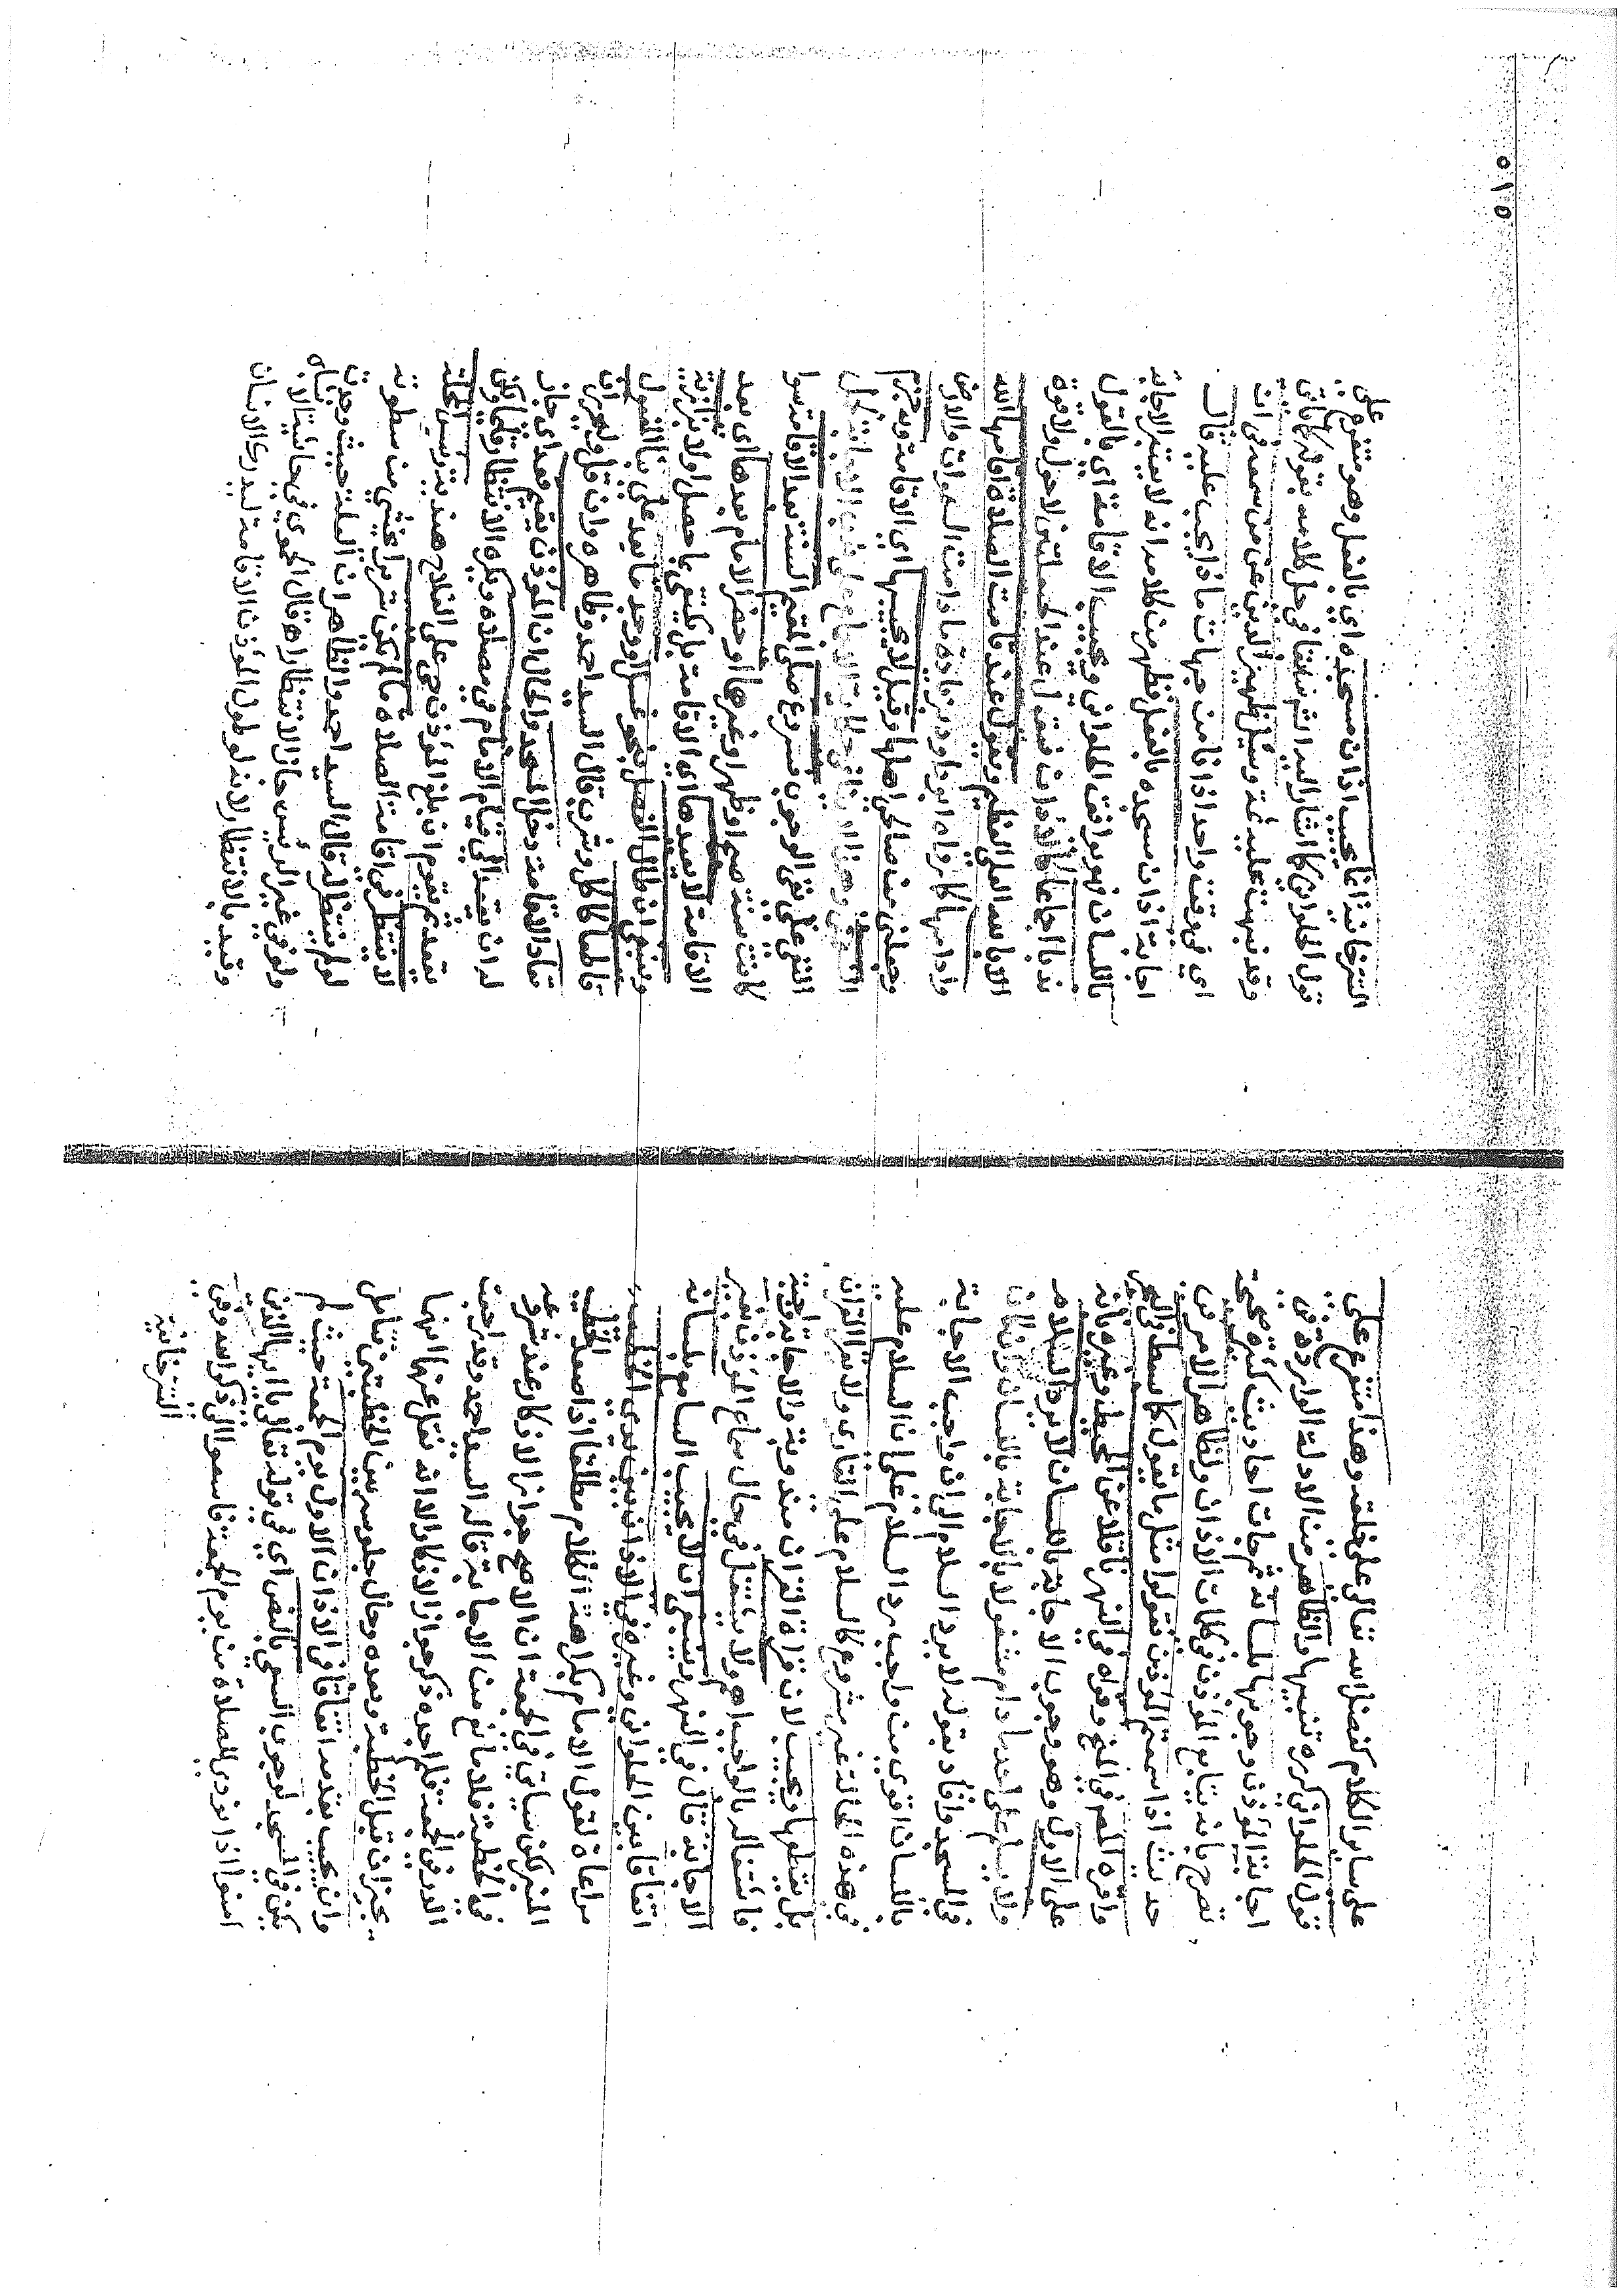 على سائر الكلام كفضل الله تعالى على خلقه وهذا متفرع على
قول الحلواني كره تنبيها والظاهر من الادلة الواردة في
اجابة المؤذن وجوبها بلسانه ثم جات احاديث كثيرة صحيحة
تصرح بانه يتابع المؤذن في كلمات الاذان ولظاهر الامر في
حديث اذا سمعتم المؤذن فقولوا مثل ما يقول كما بسط في البحر
واقره المصنف في المنح وقواه في النهر ناقلا عن المحيط وغيره بانه
على الاول وهو وجوب الاجابة باللسان لا يرد السلام
ولا يسلم على احد ما دام مشغولا بالاجابة باللسان ولو كان
في المسجد وافاد بقوله لا يرد السلام الى ان واجب الاجابة
باللسان اقوى من واجب رد السلام على ان السلام عليه
في هذه الحالة غير مشروع كالسلام على القارئ ولا يقرا القران
بل يقطعها ويجيب لان قراة القران مندوبة والاجابة واجبة
فاشتغاله بالواجب اهم ولا يشتغل في حال سماع المؤذن بغير
الاجابة قال في النهر وينبغي ان لا يجيب السامع بلسانه
اتفاقا بين الحلواني وغيره في الاذان بين يدي الخطيب
مراعاة لقول الامام بكراهة الكلام مطلقا اذا صعد الخطيب
المنبر لكن سياتي في الجمعة ان الاصح جواز الاذكار عند شروعه
في الخطبة فلا مانع من الاجابة قاله السيد احمد وقد راجعت
الدر في الجمعة فلم اجده ذكر جواز الاذكار الا انه نقل عنها انهما
يجيزان قبل الخطبة وبعده وحال جلوسه بين الخطبتين تامل
وان يجيب بقدمه اتفاقا في الاذان الاول يوم الجمعة حيث لم
يكن في المسجد لوجوب السعي بالنص اي في قوله تعالى يا ايها الذين
امنوا اذا نودي للصلاة من يوم الجمعة فاسعوا الى ذكر الله وفي
التترخانية
٥١٥
التترخانية انما يجيب اذان مسجده اي بالفعل وهو متفرع على
قول الحلواني كما اشار اليه الشرنبلالي في حل كلامه بقوله كما تقدم
وقد نبهت عليه وسئل ظهير الدين عمن سمعه في ان
اي في وقت واحد اذانا من جهات ماذا يجب عليه قال
اجابة اذان مسجده بالفعل فظهر من كلامه انه لا يعتبر الاجابة
باللسان فهو يوافق الحلواني ويجيب الاقامة اي بالقول
ندبا اجماعا كالاذان فيقول عند الحيعلتين لا حول ولا قوة
الا بالله العلي العظيم ويقول عند قد قامت الصلاة اقامها الله
وادامها كما رواه ابو داود بزيادة ما دامت السموات والارض
وجعلني من صالحي اهلها وقيل لا يجيبها اي الاقامة وبه جزم
الشمني
التي على نفي الوجوب شروع صلى المقيم السنة بعد الاقامة سوا
كانت سنة صبح او ظهر او غيرها او حضر الامام بعدها اي بعد
الاقامة لا يعيدها اي الاقامة بل يكتفي بما حصل اولا بزازية
وينبغي ان طال الفصل بنحو غسل او وجد ما يعد على بالفصول
قاطعا كاكل وشرب قال السيد احمد وظاهره وان قل وليحرر ان
تعاد الاقامة دخل المسجد والحال ان المؤذن يقيم قعد اي جاز
له ان يقعد الى قيام الامام في مصلاه ويكره الانتظار قائما ولكن
يقعد ثم يقوم اذا بلغ المؤذن حي على الفلاح هندية رئيس المحلة
لا ينتظر في اقامة الصلاة ما لم يكن شريرا يخشى من سطوته
لو لم ينتظر له قال السيد احمد والظاهر ان العلة حيث وجدت
ولو في غير الرئيس جاز الانتظار اه قال الحموي في حاشية الاشباه
وقيد بالانتظار لانه لو طول المؤذن الاقامة ليدرك الانسان